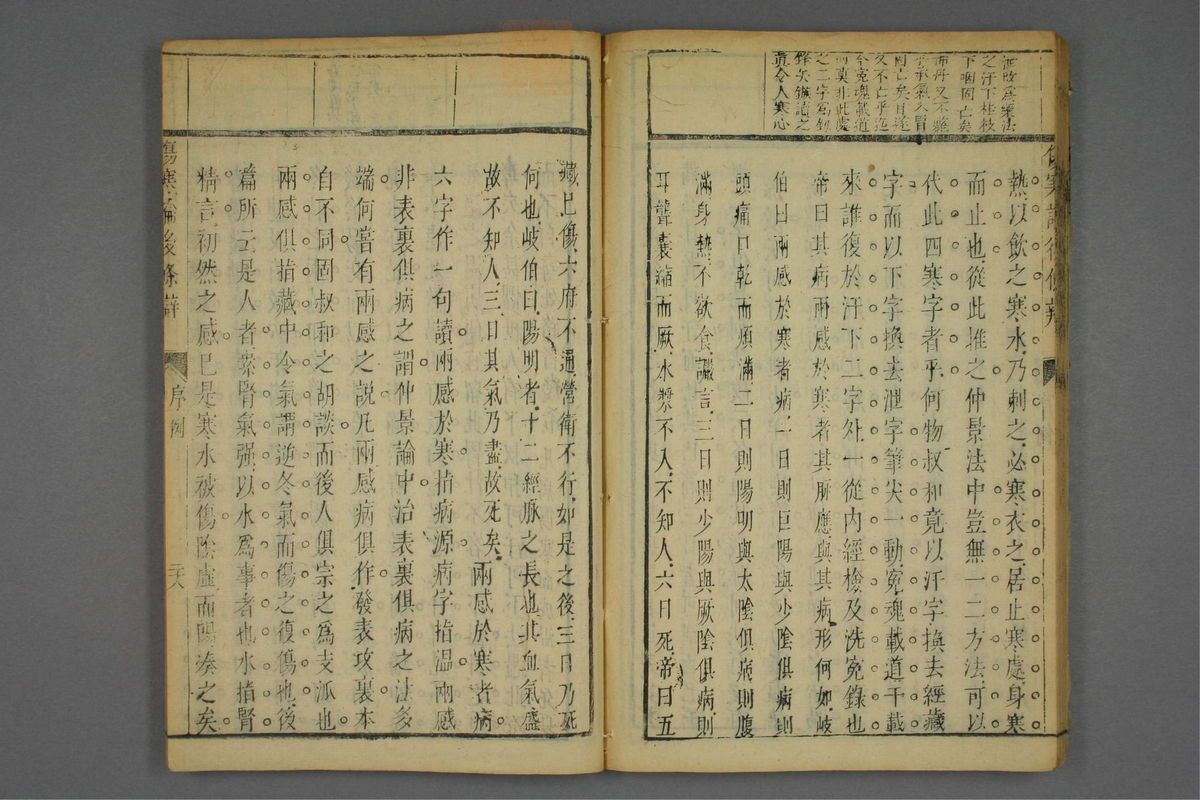 泄改爲樂法
之汗下桂枝
下咽固亡矣
命承氣入胃
固亡矣自遂
又不亡乎迄
今冤魂載道
而莫非此處
之二字爲鋒
鋒矣鏃讀之
眞令人寒心
熱以飲之寒水乃刺之必寒衣之居止寒處身寒
而止也從此推之仲景法中豈無一二方法可以
代此四寒字者乎何物叔和竟以汗字換去經藏
字而以下字換去泄字筆尖一動冤魂載道千載
來誰復於汗下二字外一從內經檢及洗冤錄也
帝曰其病兩感於寒者其脈應與其病形何如岐
伯曰兩感於寒者病一日則巨陽與少陰俱病則
頭痛口乾而煩滿二日則陽明與太陰俱病則腹
滿身熱不欲食讝言三日則少陽與厥陰俱病則
耳聾囊縮而厥水漿不入不知人六日死帝曰五
藏已傷六府不通營衛不行如是之後三日乃死
何也岐伯曰陽明者十二經脈之長也其血氣盛
故不知人三日其氣乃盡故死矣 兩感於寒者病
六字作一句讀兩感於寒指病源病字指溫兩感
非表裏俱病之謂仲景論中治表裏俱病之法多
端何嘗有兩感之說凡兩感病俱作發表攻裏本
自不同固叔和之胡談而後人俱宗之爲支派也
兩感俱指藏中令氣謂逆冬氣而傷之復傷也後
篇所云是人者素腎氣强以水爲事者也水指腎
精言初然之感已是寒水被傷陰虛而陽湊之矣
傷寒論後條辯 序例 三八